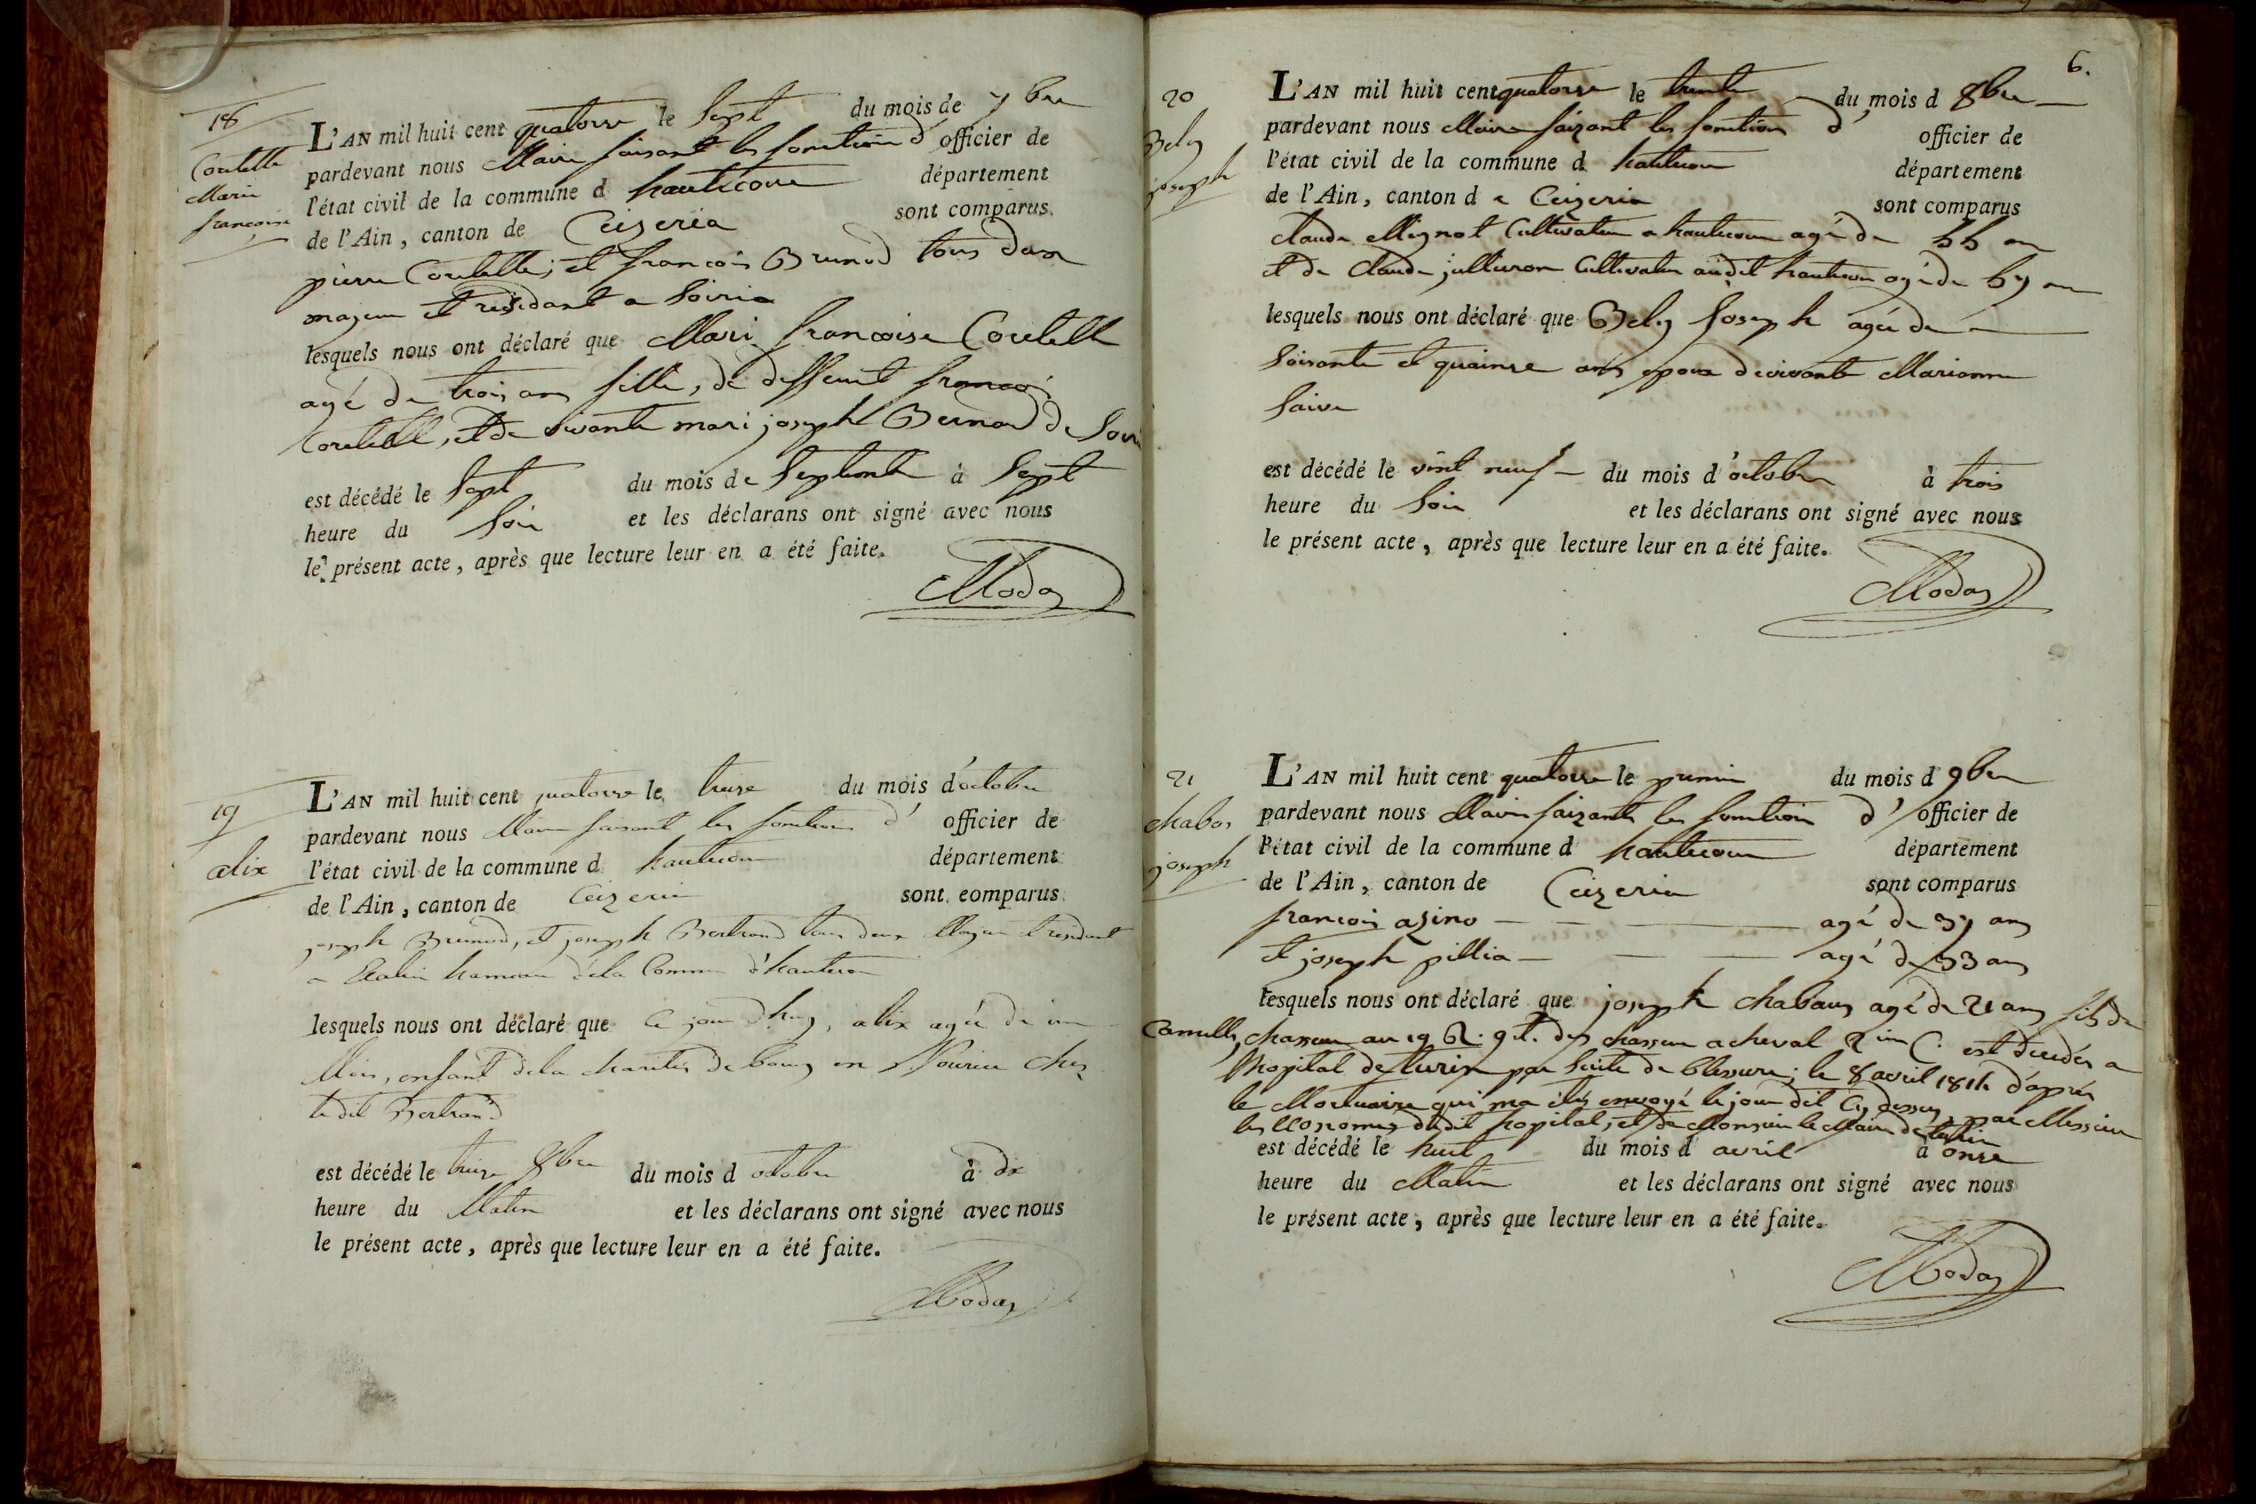 18
Coutelle
Marie
françoise
L'AN mil huit cent quatorse le Sept du mois de 7bre
pardevant nous Maire faisant les fonctions d' officier de
l'état civil de la commune d hautecour département
de l'Ain, canton de Ceizeria sont comparus
pierre Coutelle, et françois Brunod tous deux
majeur et residant a Soiria
lesquels nous ont déclaré que Mari françoise Coutelle
agé de trois ans fille, de deffeunt françois
Coutelle, et de vivante mari joseph Bernard de Soiri
est décédé le Sept du mois de Septembre à Sept
heure du Soir et les déclarans ont signé avec nous
le présent acte, après que lecture leur en a été faite.
Moda
19
alix
L'AN mil huit cent quatorse le treise du mois d'octobre
pardevant nous Maire faisant les fonctions d' officier de
l'état civil de la commune d hautecour département
de l'Ain, canton de Ceizeria sont comparus
joseph Brunod, et joseph Bertrand tous deux Majeur et residant
a hameau de la Commune d'hautecour
lesquels nous ont déclaré que Ce jour d'huy, alix agée de un
Mois, enfant de la charité de bourg en Nourice Chez
ledit Bertrand
est décédé le treise 8bre du mois d octobre à dix
heure du Matin et les déclarans ont signé avec nous
le présent acte, après que lecture leur en a été faite.
Moda
6.
20
Bely
joseph
L'AN mil huit cent quatorse le trente du mois d 8bre
pardevant nous Maire faizant les fonctions d' officier de
l'état civil de la commune d hautecour département
de l'Ain, canton d e Ceizeria sont comparus
Claude Mignot Cultivateur a hautecour agé de 55 ans
et de Claude jullieron Cultivateur audit hautecour agé de 67 ans
lesquels nous ont déclaré que Bely Joseph agée de
Soisante et quainse ans epoux de vivante Marianne
Saive
est décédé le vint neuf du mois d'octobre à trois
heure du Soir et les déclarans ont signé avec nous
le présent acte, après que lecture leur en a été faite.
Moda
21
chabos
joseph
L'AN mil huit cent quatorse le premier du mois d 9bre
pardevant nous Maire faizants les fonctions d' officier de
l'état civil de la commune d hautecour département
de l'Ain, canton de Ceizeria sont comparus
françois azino agé de 37 ans
et joseph pillia agé de 33 ans
lesquels nous ont déclaré que joseph chabaus agé de 21 ans fils de
Camille, chasseur au 19 R. g.t. des chasseur a cheval 2 im C. est decedés a
l'hopital de turin par Suite de blessure; le 8 avril 1814 d'aprés
le Mortuaire qui ma étés envoyé le jour dit Cy dessus, par Messieurs
les economes dudit hopital, et de Monsieur le Maire de turin
est décédé le huit du mois d avril à onse
heure du Matin et les déclarans ont signé avec nous
le présent acte, après que lecture leur en a été faite.
Moda